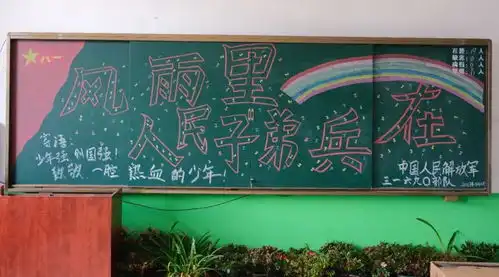 八一
风雨里
人民子弟兵在
寄语
少年强 则国强!
致敬 一腔 热血 的 少年!
中国人民解放军
三一六九〇部队